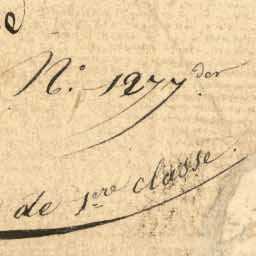 N.º 1277 der
de 1ere classe.